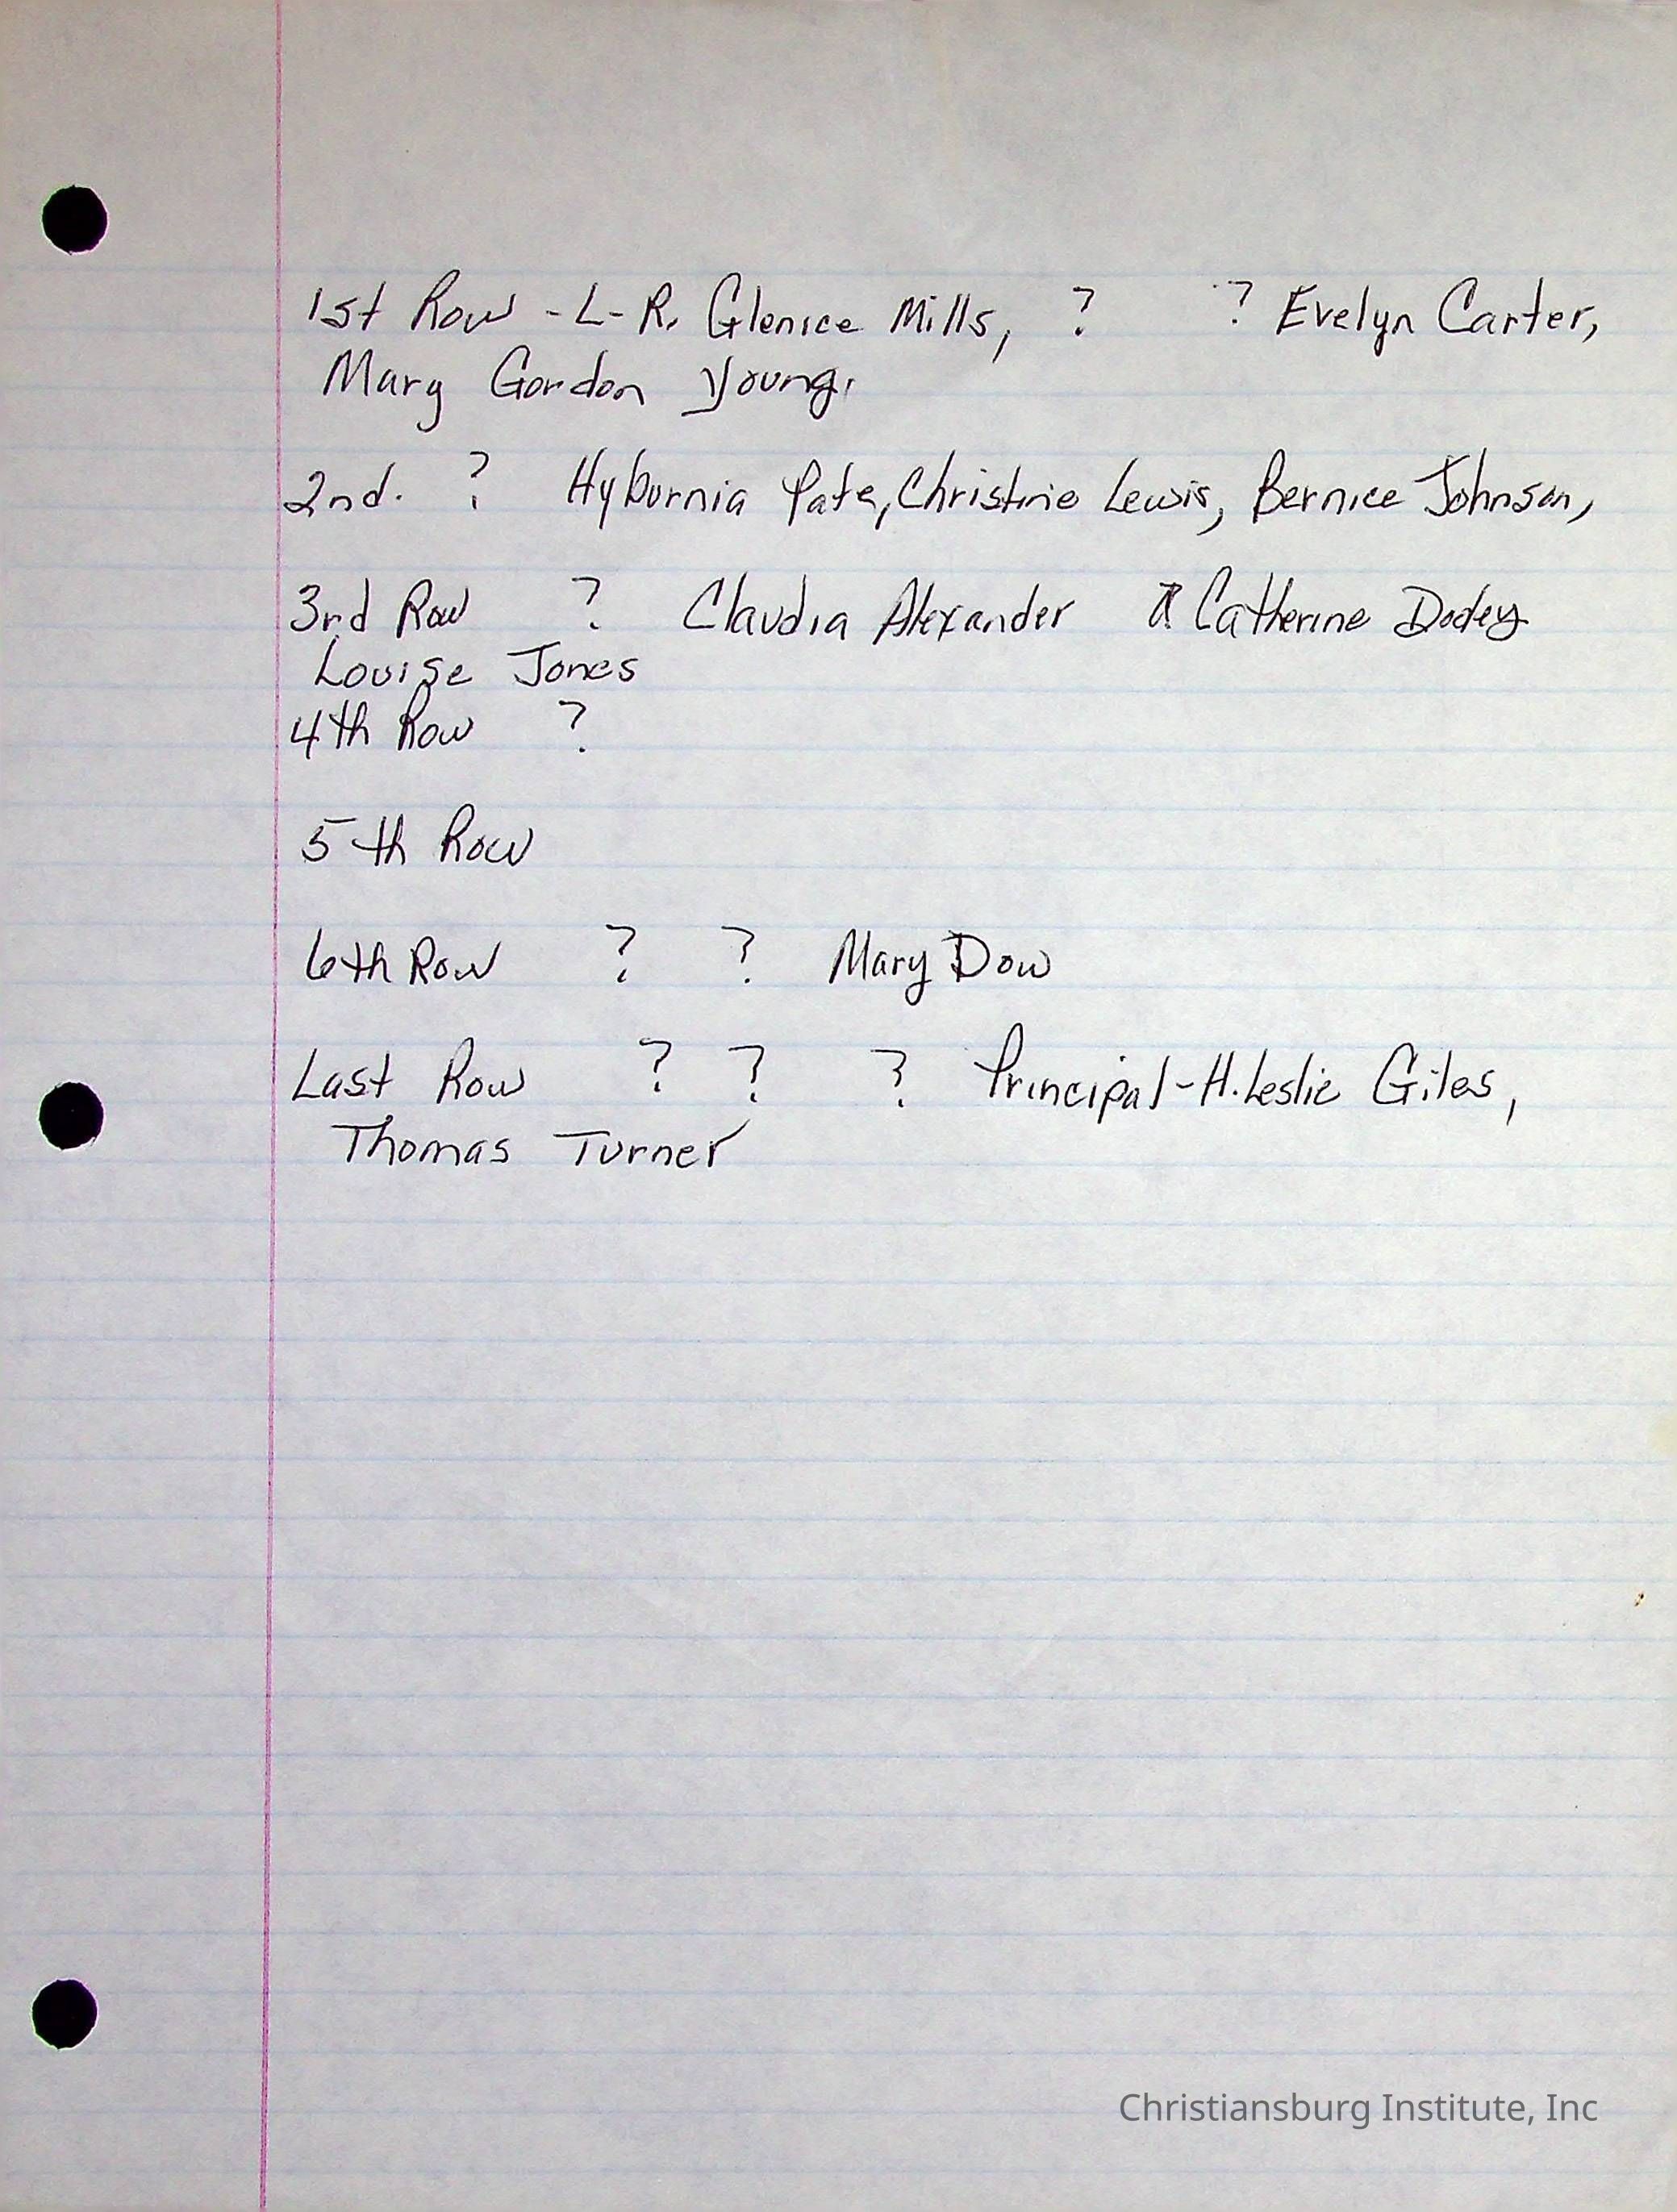 1st Row - L-R. Glenice Mills, ? ? Evelyn Carter,
Mary Gordon Young,
2nd. ? Hyburnia Pate, Christine Lewis, Bernice Johnson,
3rd Row ? Claudia Alexander Catherine Dodey
Louise Jones
4th Row ?
5th Row
6th Row ? ? Mary Dow
Last Row ? ? ? Principal-H. Leslie Giles,
Thomas Turner
Christiansburg Institute, Inc